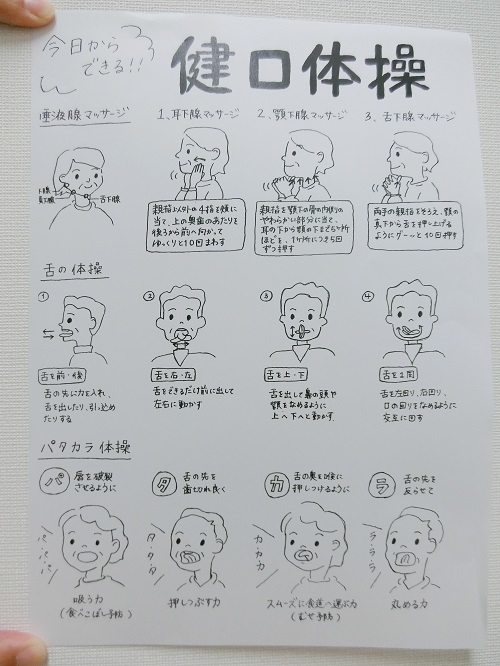 今日から
できる!!
健口体操
唾液腺マッサージ
1、耳下腺マッサージ
2、顎下腺マッサージ
3、舌下腺マッサージ
舌下腺
親指以外の4指を頬に
当て、上の奥歯のあたりを
後ろから前へ向かって
ゆっくりと10回まわす
親指を顎下の骨の内側の
やわらかい部分に当て、
耳の下から顎の下まで5ヶ所
ほどを、1ヶ所につき5回
ずつ押す
両手の親指をそろえ、顎の
真下から舌を押し上げる
ようにグーッと10回押す
舌の体操
①
②
③
④
舌を前・後
舌の先に力を入れ、
舌を出したり、引っ込め
たりする
舌を右・左
舌をできるだけ前に出して
左右に動かす
舌を上・下
舌を出して鼻の頭や
顎をなめるように
上へ下へと動かす
舌を1周
舌を左回り、右回り、
口の回りをなめるように
交互に回す
パタカラ体操
パ
唇を破裂
させるように
タ
舌の先を
歯切れ良く
カ
舌の奥を喉に
押しつけるように
ラ
舌の先を
反らせて
パ・パ・パ
タ・タ・タ
カ・カ・カ
ラ・ラ・ラ
吸う力
(食べこぼし予防)
押しつぶす力
スムーズに食道へ運ぶ力
(むせ予防)
丸める力